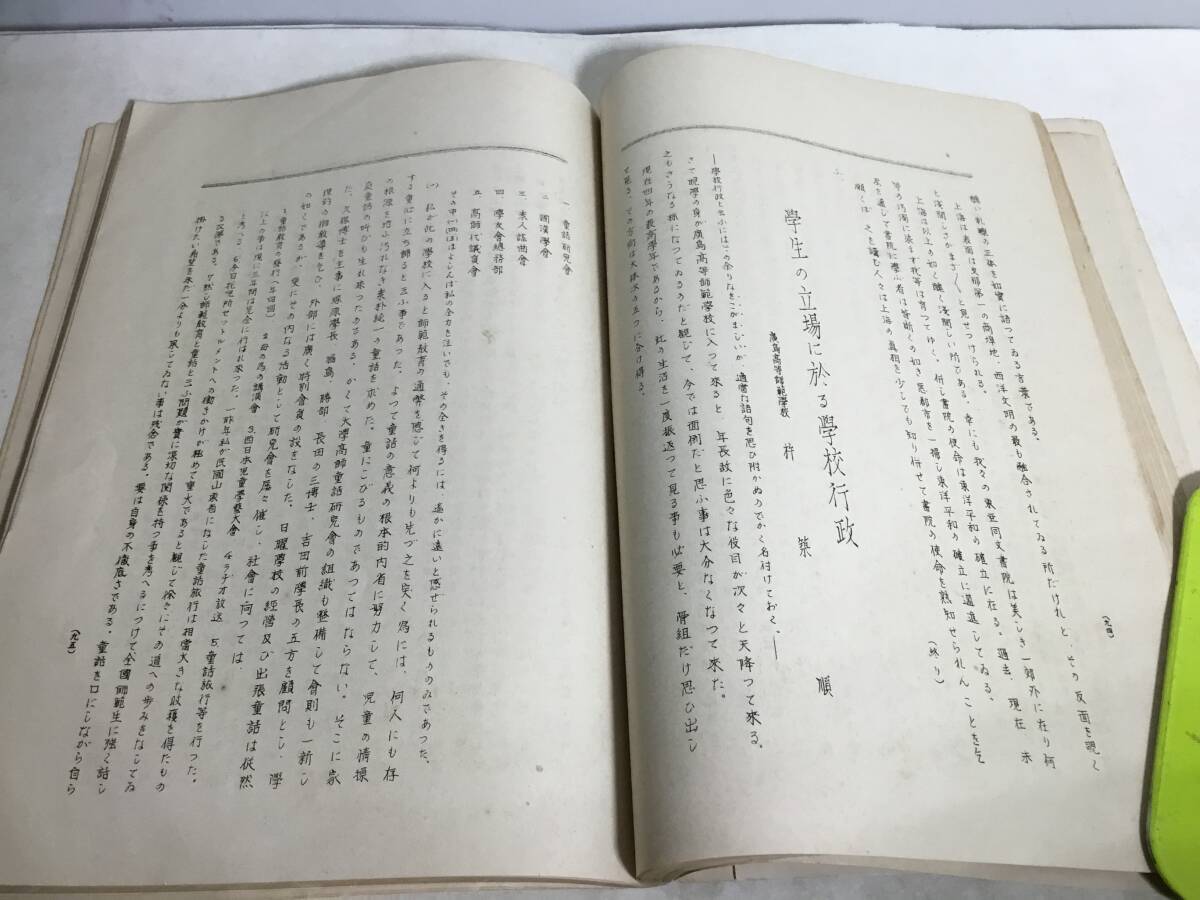 (九四)
醜い乱雑の正体を如實に語つてゐる言葉である。
上海は表面は支那第一の商埠地、西洋文明の最も融合されてゐる所だけれど、その反面を覗く
と淺間しさがまざ〱と見せつけられる。
上海は以上の如く醜く淺間しい所である。幸にも我々の東亜同文書院は美しき一郊外に在り何
等の汚濁に染まず我等は育つてゆく。併し書院の使命は東洋平和の確立に在る。過去、現在 未
來を通じて書院に學ぶ者は等斷くの如き悪都市を一掃し東洋平和の確立に邁進してゐる。
願くば 之を讀む人々は上海の眞相を少しでも知り併せて書院の使命を熟知せられんことを乞
(終り)
學生の立場に於る學校行政
廣島高等師範學校 築 順
―學校行政と云ふにはこの余りなをこがましいが、適當な語句を思ひ附かぬのでかく名付けておく。―
さて現學の身が廣島高等師範學校に入つて來ると 年長故に色々な役目が次々と天降つて來る。
之もさうなる様になつてゐるのだと観じて、今では面倒だと思ふ事は大分なくなつて來た。
現在四年の最高學年であるから、此の生活を一度振返つて見る事も必要と、骨組だけ思ひ出し
て見る。その方面は大体次の五つに分け得る。
一 童話研究會
二 國漢學會
三 素人謡曲會
四 學友會總務部
五 高師代議員會
その中(一)(四)はよしんば私の全力を注いでも、その全きを得るには、遙かに遠いと感ぜられるもののみであつた。
(一) 私が此の學校に入ると師範教育の通弊を感じて何よりも先づ之を突く為には、何人にも存
する童心に立ち歸ると云ふ事であつた。よつて童話の意義の根本的内省に努力して、児童の情操
の根源を培ふ汚れなき素朴純一の童話を求めた。童にこびるものであつてはならない。そこに家
庭童話の叫びも生れ來つたのである。かくて大學高師童話研究會の組織も整備して會則も一新し
た。久保博士を主事に塚原學長 福島、勝部 長田の三博士、吉田前學長の五方を顧問とし、學
理的の御教導を乞ひ、外部には廣く特別會員の設をなした。日曜學校の經營及び出張童話は依然
の如くであるが、更にその内なる活動として研究會を屡々催し、社會に向つては、
1 童話教育の發行(年四回) 2 母の為の講議會 3. 西日本児童學藝大會 4. ラヂオ放送 5. 童話旅行等を行つた。
以上の事は僅に三年間に完全に行はれ來つた。一昨年私が民國山東省になした童話旅行は相當大きな收穫を得たもの
と考へる。6 今日托児所セットルメントへの働きかけが極めて重大であると観じて徐々にその道への歩みをなしてゐ
る次第である。7 然し師範教育と童話と云ふ問題が實に深切な関係を持つ事を考へるにつけて全國師範生に強く話し
掛けたい希望を未だ一分よりも果してゐない事は残念である。要は自身の不徹底さである。童話を口にしながら自ら
(九五)